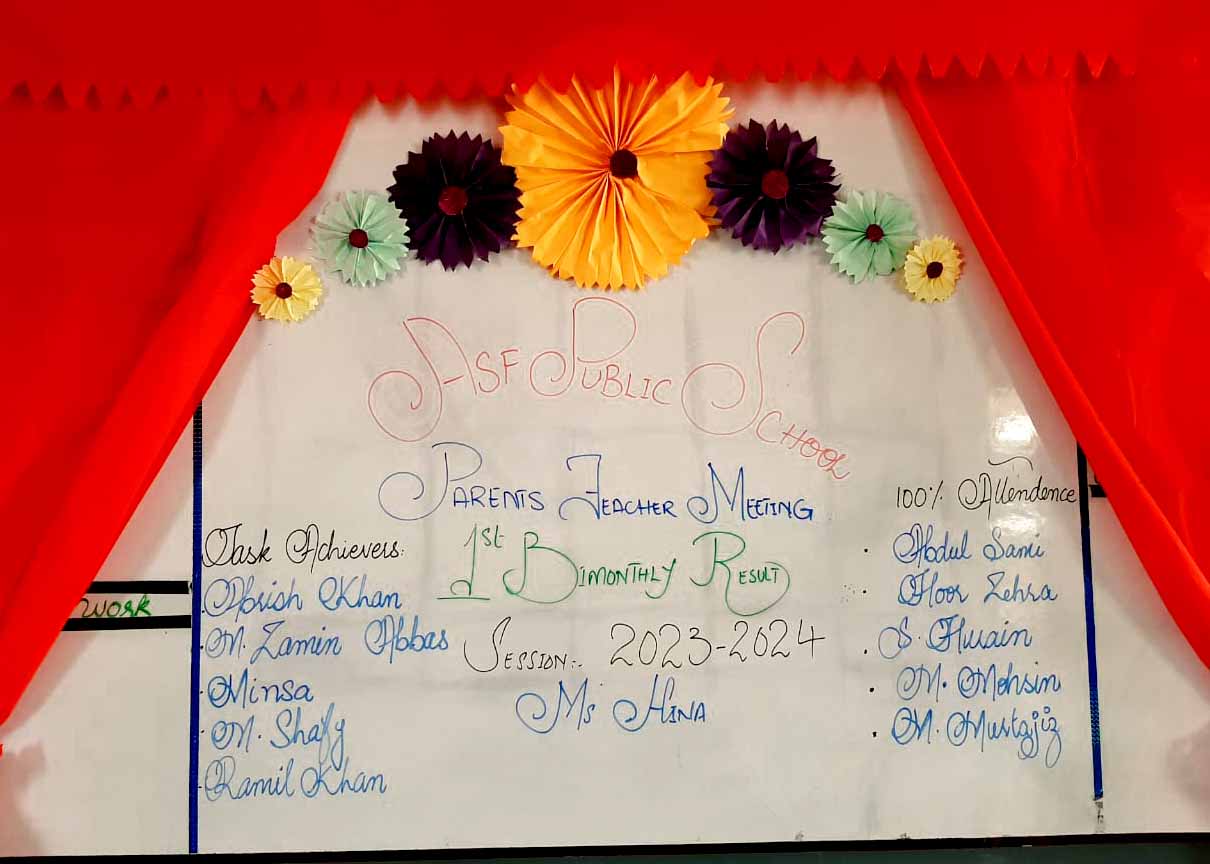 ASF PUBLIC SCHOOL
PARENTS TEACHER MEETING
1st BIMONTHLY RESULT
SESSION:. 2023-2024
Ms HINA
Task Achievers:
Abrish Khan
M. Zamin Abbas
Minsa
M. Shafy
Ramil Khan
work
100% Attendence
Abdul Sami
Hoor Zehra
S. Husain
M. Mohsin
M. Mustajiz